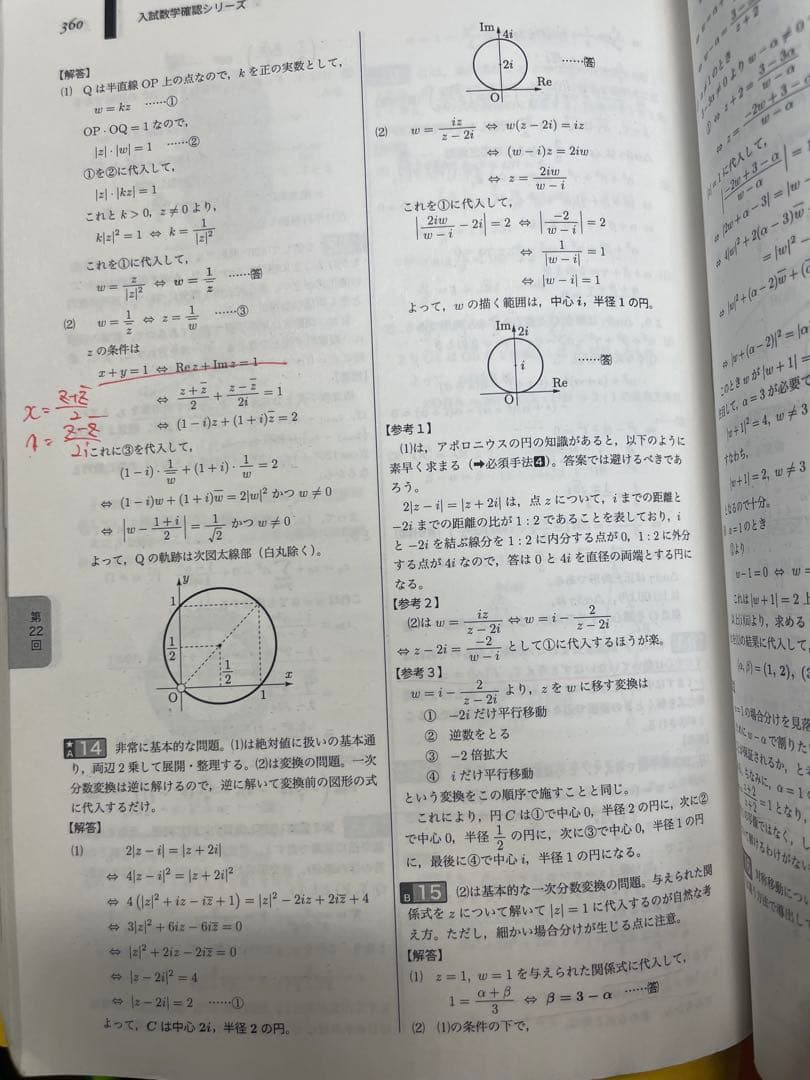 360
入試数学確認シリーズ
【解答】
(1) Qは半直線OP上の点なので，kを正の実数として，
w=kz ……①
OP・OQ=1なので，
|z|・|w|=1 ……②
①を②に代入して，
|z|・|kz|=1
これとk>0，z≠0より，
k|z|²=1 ⇔ k=1/|z|²
これを①に代入して，
w=z/|z|² ⇔ w=1/z̅ ……答
(2) w=1/z̅ ⇔ z=1/w̅ ……③
zの条件は
x+y=1 ⇔ Re z+Im z=1
x=(z+z̅)/2
⇔ (z+z̅)/2+(z−z̅)/2i=1
⇔ (1−i)z+(1+i)z̅=2
(z−z̅)/2i
これに③を代入して，
(1−i)・1/w̅+(1+i)・1/w=2
⇔ (1−i)w+(1+i)w̅=2|w|² かつ w≠0
⇔ |w−(1+i)/2|=1/√2 かつ w≠0
よって，Qの軌跡は次図太線部（白丸除く）。
y
1
1/2
O
1/2
1
x
第22回
★A 14 非常に基本的な問題。(1)は絶対値に扱いの基本通
り，両辺2乗して展開・整理する。(2)は変換の問題。一次
分数変換は逆に解けるので，逆に解いて変換前の図形の式
に代入するだけ。
【解答】
(1) 2|z−i|=|z+2i|
⇔ 4|z−i|²=|z+2i|²
⇔ 4(|z|²+iz−iz̅+1)=|z|²−2iz+2iz̅+4
⇔ 3|z|²+6iz−6iz̅=0
⇔ |z|²+2iz−2iz̅=0
⇔ |z−2i|²=4
⇔ |z−2i|=2 ……①
よって，Cは中心2i，半径2の円。
Im
4i
2i
……答
O
Re
(2) w=iz/(z−2i) ⇔ w(z−2i)=iz
⇔ (w−i)z=2iw
⇔ z=2iw/(w−i)
これを①に代入して，
|2iw/(w−i)−2i|=2 ⇔ |−2/(w−i)|=2
⇔ 1/|w−i|=1
⇔ |w−i|=1
よって，wの描く範囲は，中心i，半径1の円。
Im
2i
i
……答
O
Re
【参考1】
(1)は，アポロニウスの円の知識があると，以下のように
素早く求まる（➡必須手法4）。答案では避けるべきであ
ろう。
2|z−i|=|z+2i|は，点zについて，iまでの距離と
−2iまでの距離の比が1：2であることを表しており，i
と−2iを結ぶ線分を1：2に内分する点が0，1：2に外分
する点が4iなので，答は0と4iを直径の両端とする円に
なる。
【参考2】
(2)は w=iz/(z−2i) ⇔ w=i−2/(z−2i)
⇔ z−2i=−2/(w−i) として①に代入するほうが楽。
【参考3】
w=i−2/(z−2i) より，zをwに移す変換は
① −2iだけ平行移動
② 逆数をとる
③ −2倍拡大
④ iだけ平行移動
という変換をこの順序で施すことと同じ。
これにより，円Cは①で中心0，半径2の円に，次に②
で中心0，半径1/2の円に，次に③で中心0，半径1の円
に，最後に④で中心i，半径1の円になる。
B 15 (2)は基本的な一次分数変換の問題。与えられた関
係式をzについて解いて|z|=1に代入するのが自然な考
え方。ただし，細かい場合分けが生じる点に注意。
【解答】
(1) z=1，w=1を与えられた関係式に代入して，
1=(α+β)/3 ⇔ β=3−α ……答
(2) (1)の条件の下で，
に代入して，
すなわち，
となるので十分。
α=1のとき